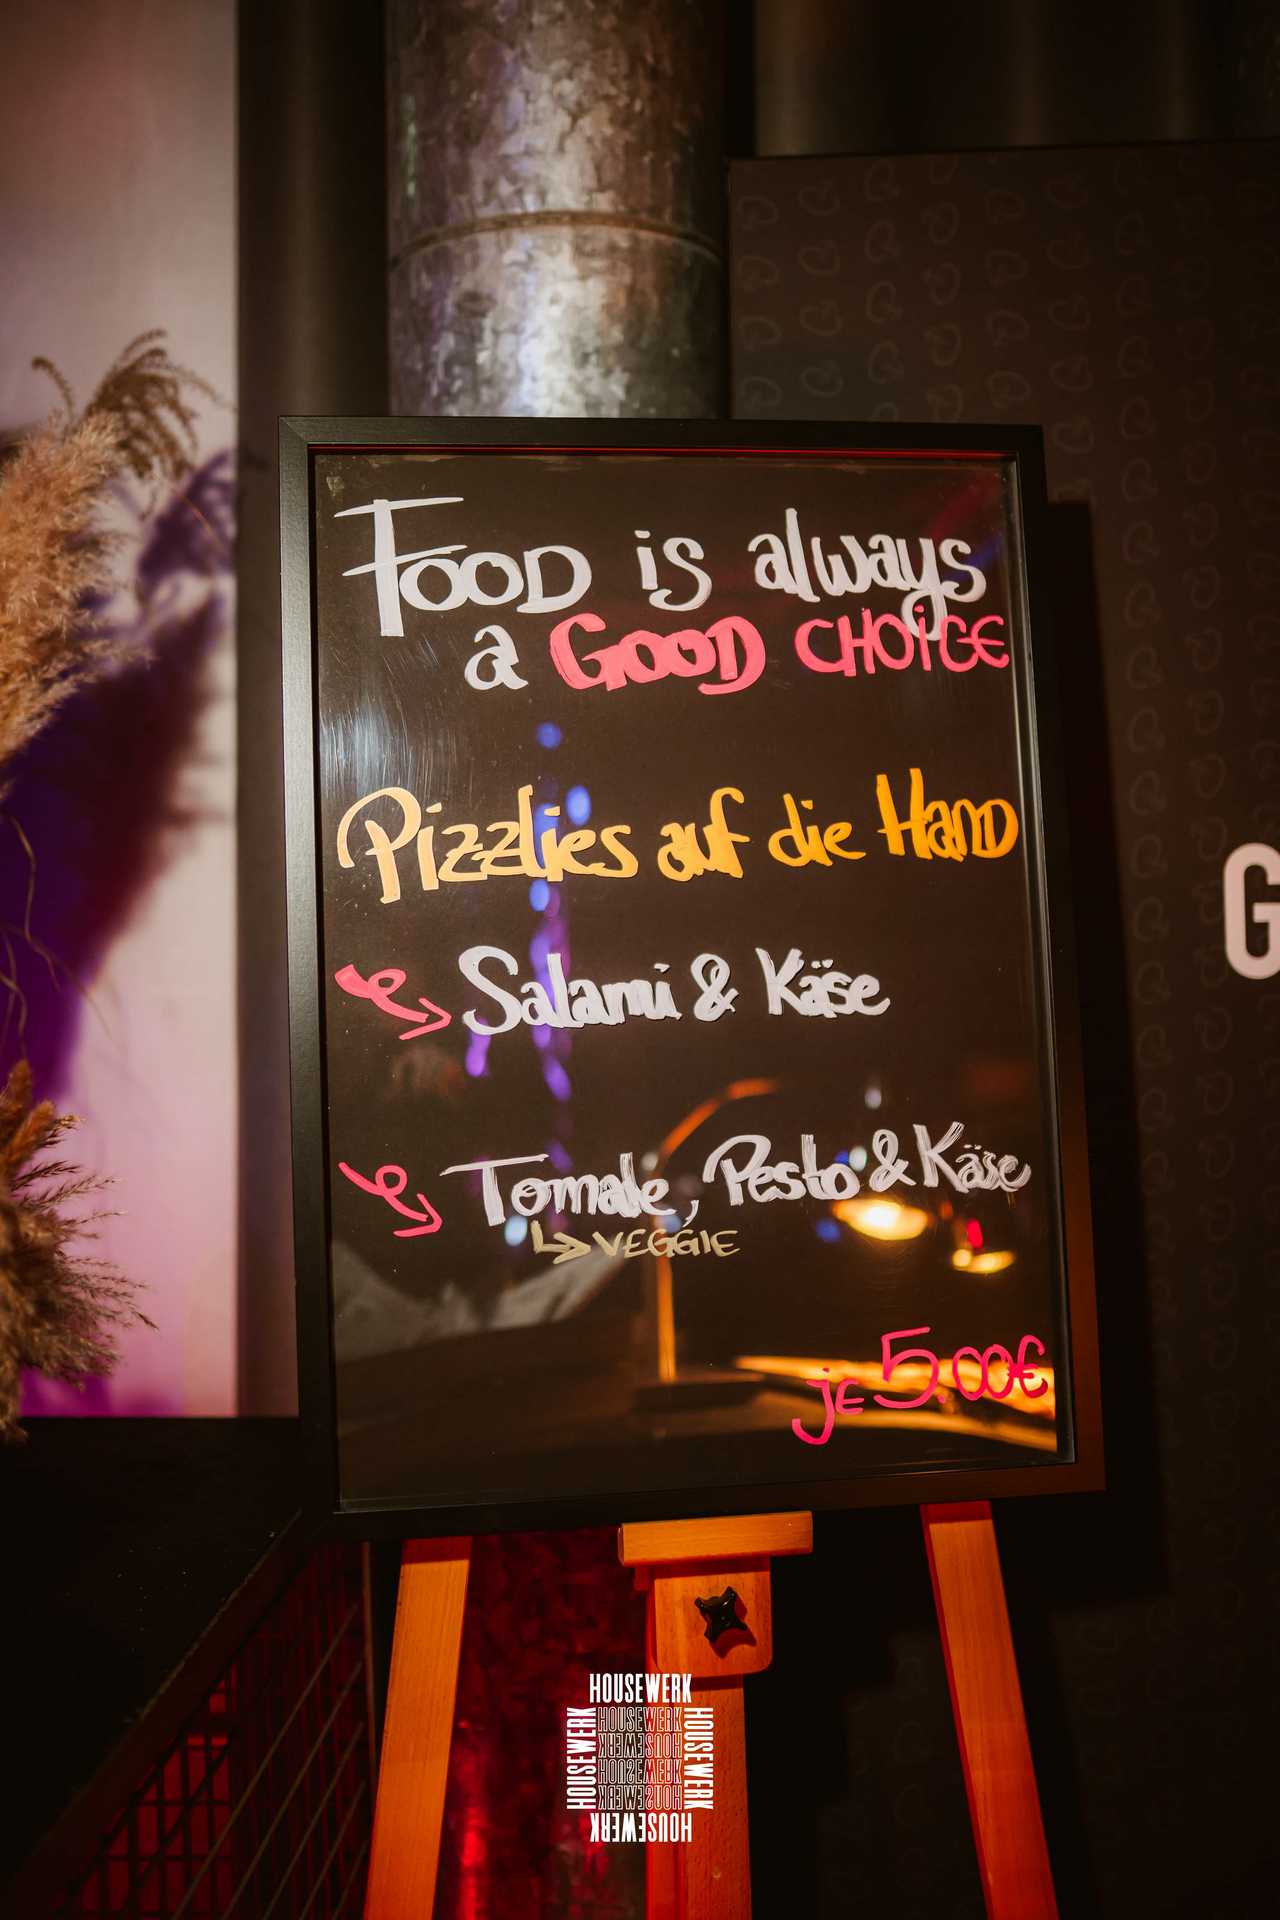 Food is always
a GOOD CHOiCE
Pizzlies auf die Hand
Salami & Käse
Tomate, Pesto & Käse
VEGGIE
je 5.00€
G
HOUSEWERK
HOUSEWERK
HOUSEWERK
HOUSEWERK
HOUSEWERK
HOUSEWERK
HOUSEWERK
HOUSEWERK